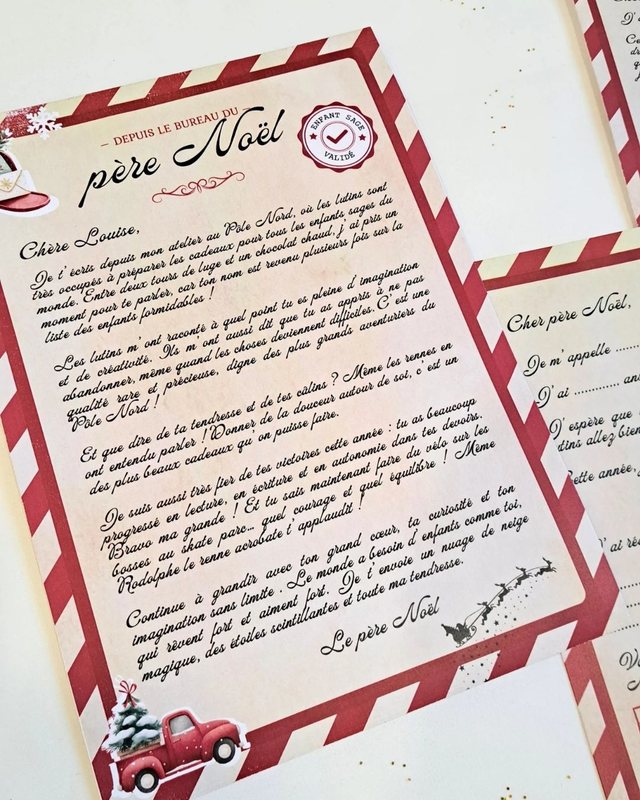 – DEPUIS LE BUREAU DU –
père Noël
ENFANT SAGE
VALIDÉ
Chère Louise,
Je t'écris depuis mon atelier au Pôle Nord, où les lutins sont
très occupés à préparer les cadeaux pour tous les enfants sages du
monde. Entre deux tours de luge et un chocolat chaud, j'ai pris un
moment pour te parler, car ton nom est revenu plusieurs fois sur la
liste des enfants formidables !
Les lutins m'ont raconté à quel point tu es pleine d'imagination
et de créativité. Ils m'ont aussi dit que tu as appris à ne pas
abandonner, même quand les choses deviennent difficiles. C'est une
qualité rare et précieuse, digne des plus grands aventuriers du
Pôle Nord !
Et que dire de ta tendresse et de tes câlins ? Même les rennes en
ont entendu parler ! Donner de la douceur autour de soi, c'est un
des plus beaux cadeaux qu'on puisse faire.
Je suis aussi très fier de tes victoires cette année : tu as beaucoup
progressé en lecture, en écriture et en autonomie dans tes devoirs.
Bravo ma grande ! Et tu sais maintenant faire du vélo sur les
bosses au skate parc... quel courage et quel équilibre ! Même
Rodolphe le renne acrobate t'applaudit !
Continue à grandir avec ton grand cœur, ta curiosité et ton
imagination sans limite. Le monde a besoin d'enfants comme toi,
qui rêvent fort et aiment fort. Je t'envoie un nuage de neige
magique, des étoiles scintillantes et toute ma tendresse.
Le père Noël
Cher père Noël,
Je m'appelle ..........
J'ai ............ an
J'espère que
tins allez bien
ette année,
'ai ré